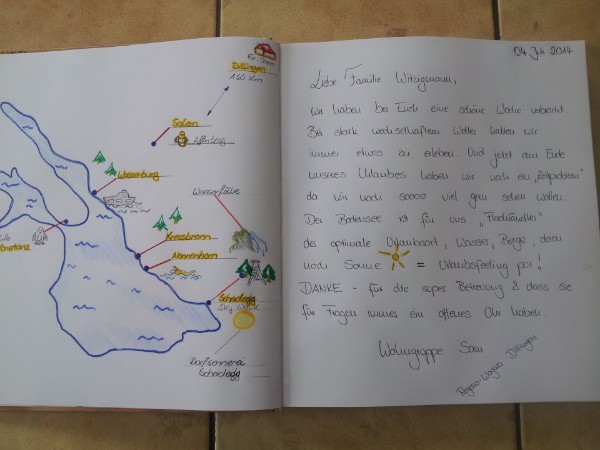 Dillingen
160 km
Salem
Affenberg
Wasserburg
Wasserfälle
Kressbronn
Nonnenhorn
Scheidegg
Sky Walk
Dorfsennerei
Scheidegg
04. Juli 2014
Liebe Familie Witzigmann,
wir haben bei Euch eine schöne Woche verbracht.
Bei stark wechselhaftem Wetter hatten wir
immer etwas zu erleben. Und jetzt am Ende
unseres Urlaubes haben wir noch ein „Zeitproblem"
da wir noch soooo viel gern sehen wollen.
Der Bodensee ist für uns „Flachländler"
der optimale Urlaubsort, Wasser, Berge, dann
noch Sonne = Urlaubsfeeling pur!
DANKE - für die super Betreuung & dass sie
für Fragen immer ein offenes Ohr haben.
Wohngruppe Sam
Dillingen